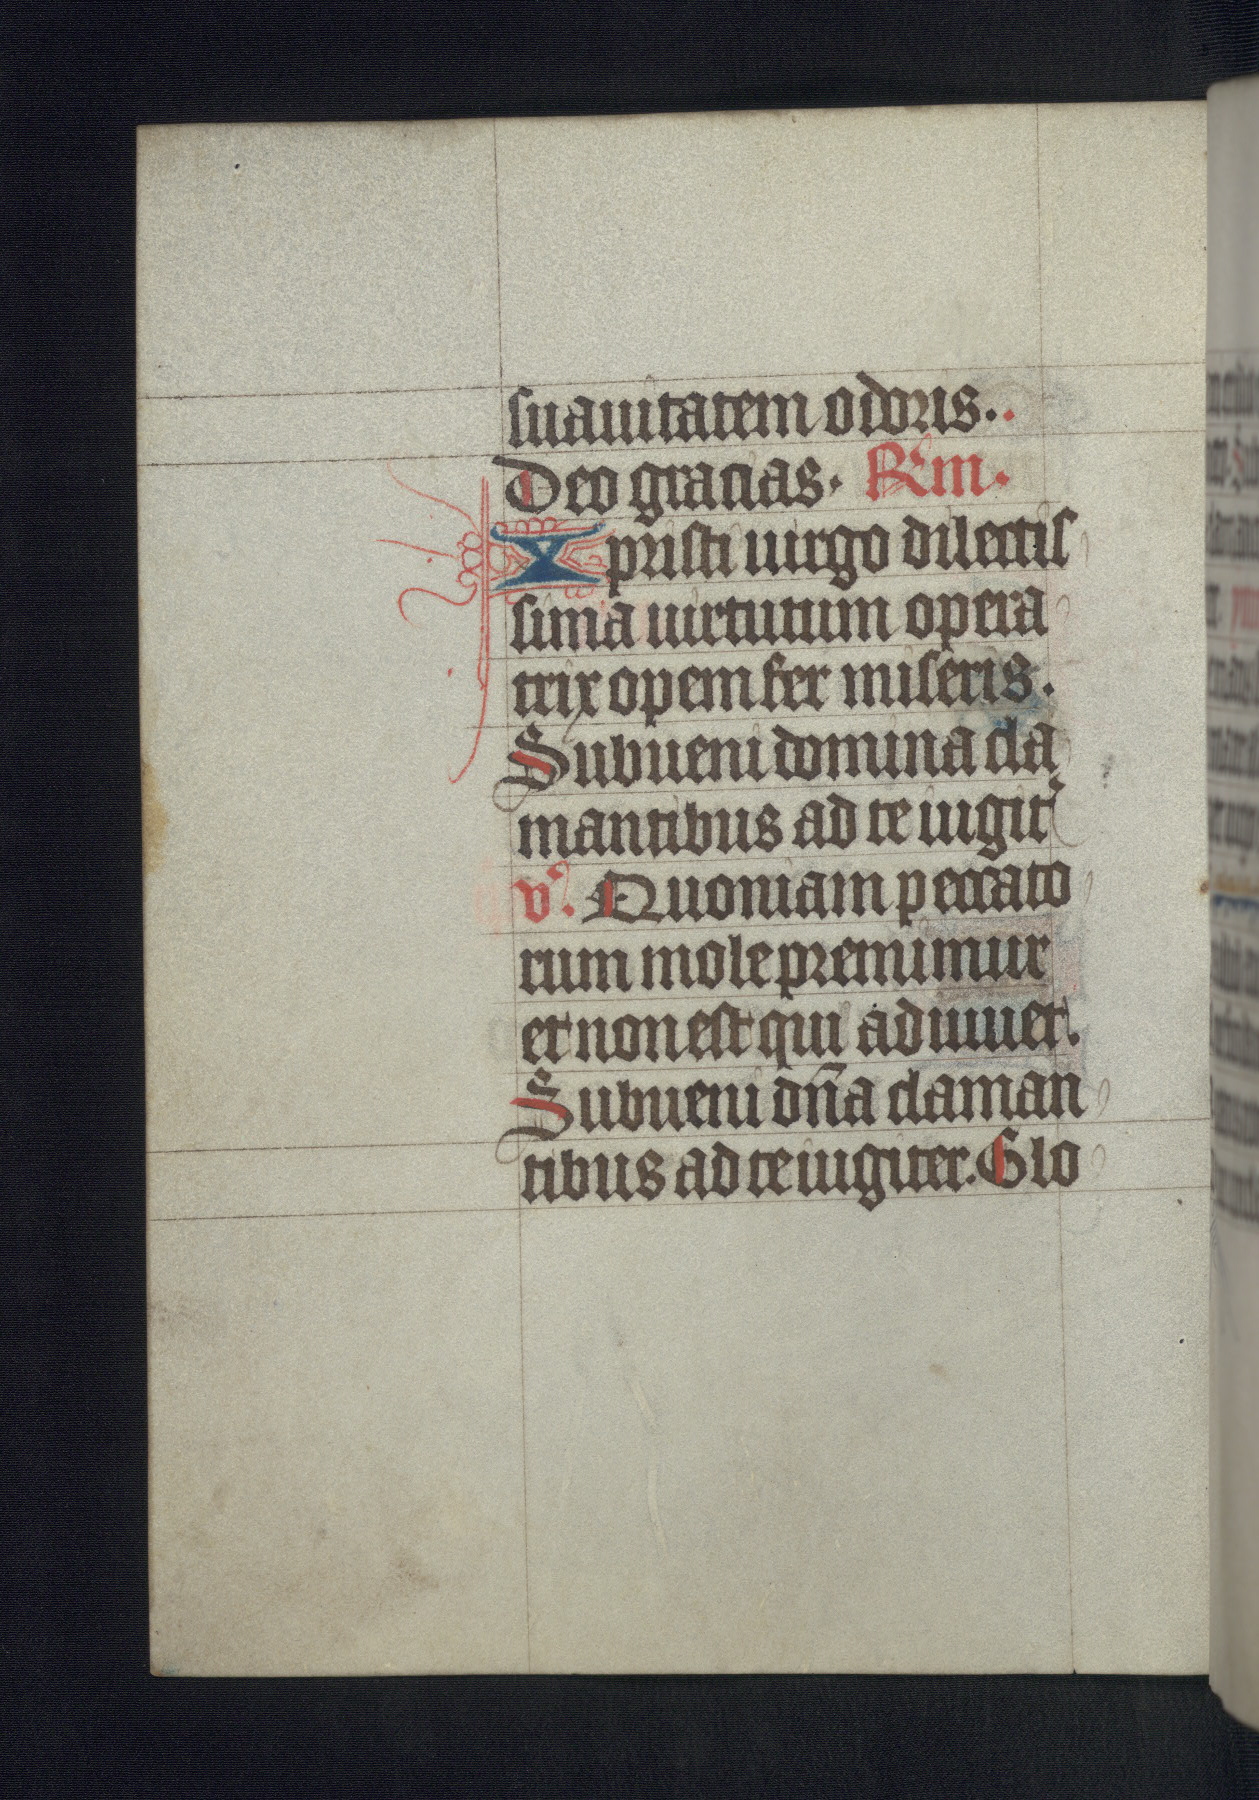 suauitatem odoris.
Deo gracias. Rm.
Xpristi uirgo dilectis
sima uirtutum opera
trix opem fer miseris.
Subueni domina cla
mantibus ad te iugit᾽
v᾽. Quoniam peccato
rum mole premimur
et non est qui adiuuet.
Subueni dña claman
tibus ad te iugiter. Glo